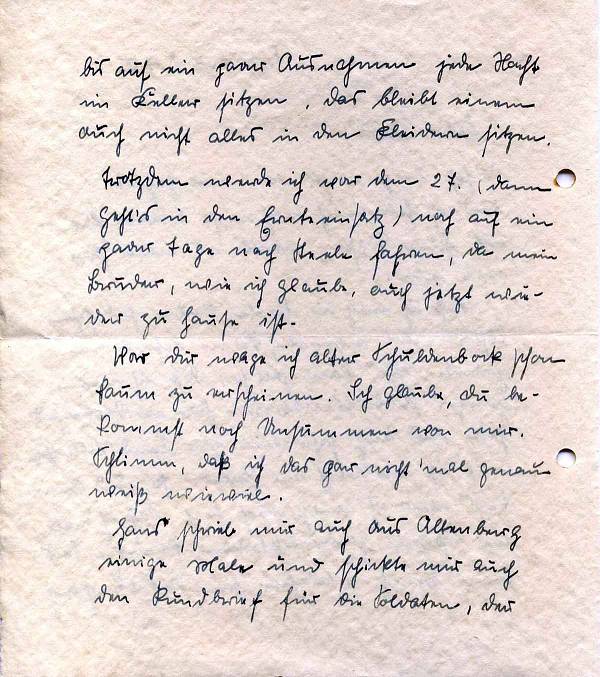 bis auf ein paar Ausnahmen jede Nacht
im Keller sitzen, das bleibt einem
auch nicht alles in den Kleidern sitzen.
Trotzdem werde ich vor dem 27. (dann
geht's in den Ernteeinsatz) noch auf ein
paar Tage nach Heele fahren, da mein
Bruder, wie ich glaube, auch jetzt wie-
der zu Hause ist.
Vor dir wage ich alter Schuldenbock schon
kaum zu erscheinen. Ich glaube, du be-
kommst noch Unsummen von mir.
Schlimm, daß ich das gar nicht 'mal genau
weiß wieviel.
Hans schrieb mir auch aus Altenberg
einige Male und schickte mir auch
den Rundbrief für die Soldaten, der